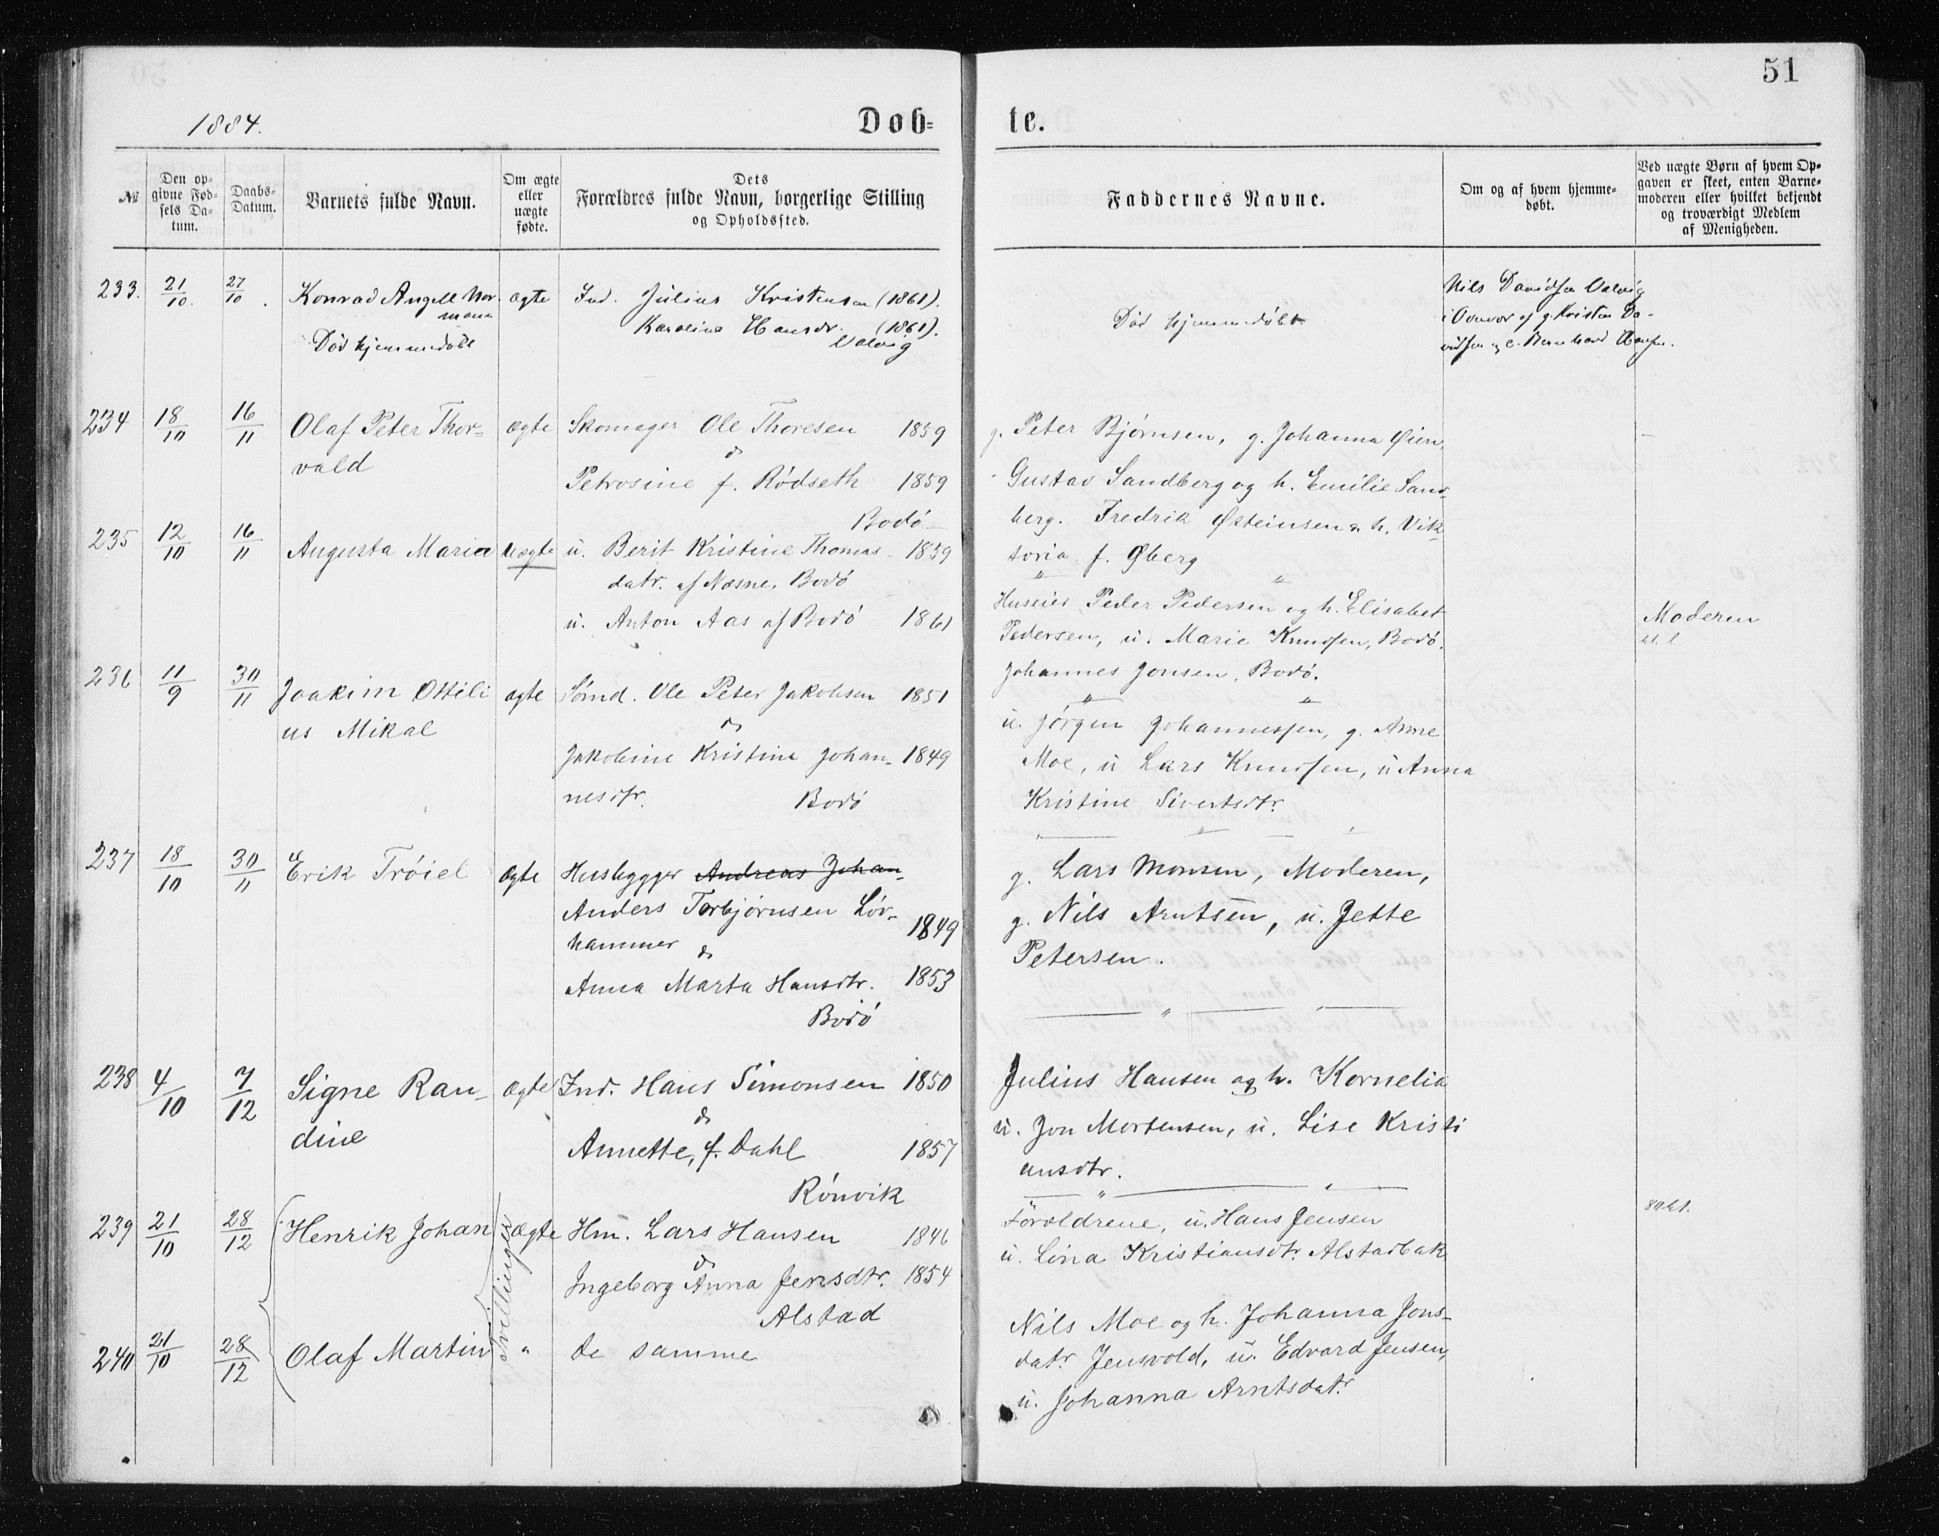 51
1884.
Døb=
te.
No
Den op-
givne Fød-
sels Da-
tum.
Daabs-
Datum.
Barnets fulde Navn.
Om ægte
eller
uægte
fødte.
Dets
Forældres fulde Navn, borgerlige Stilling
og Opholdssted.
Faddernes Navne.
Om og af hvem hjemme-
døbt.
Ved uægte Børn af hvem Op-
gaven er skeet, enten Barne-
moderen eller hvilket bekjendt
og troværdigt Medlem
af Menigheden.
233. 21/10. 27/10. Konrad Angell Nor- ægte Ind. Julius Kristensen (1861).
mann Karoline Hansdr. (1861).
Død hjemmedøbt Valvig
Død hjemmedøbt
Nils Davidsen Valvig
af g. Kristen Da-
vidsen og e. Bernhard Hansen.
234 18/10 16/11 Olaf Peter Thor- ægte Skomager Ole Thoresen 1859
vald &
Petrosine f. Rødseth 1859
Bodø
g. Peter Bjørnsen, g. Johanna Øien,
Gustav Sandberg og h. Emilie Sand-
berg. Fredrik Østeinsen & h. Vik-
toria f. Øberg
235 12/10 16/11 Augusta Maria uægte u. Berit Kristine Thomas- 1839
datr. af Næsne, Bodø
u. Anton Aas af Bodø 1861
Huseier Peder Pedersen og h. Elisabet
Pedersen, u. Marie Knudsen, Bodø.
Johannes Jonsen, Bodø.
Moderen
236 11/9 30/11 Joakim Ottili ægte Sømd. Ole Peter Jakobsen 1851
us Mikal &
Jakobine Kristine Johan- 1849
nesdtr. Bodø
u. Jørgen Johannessen, g. Anne
Moe, u Lars Knudsen, u Anna
Kristine Sivertsdtr.
237 18/10 30/11 Erik Trøiel ægte Husbygger Andreas Johan-
Anders Torbjørnsen Løv-
hammer & 1849
Anna Marta Hansdtr. 1853
Bodø
g. Lars Monsen, Moderen,
g. Nils Arntsen, u. Jette
Petersen.
238 4/10 7/12 Signe Ran- ægte Ind. Hans Simonsen 1850
dine &
Annette, f. Dahl 1857
Rønvik
Julius Hansen og h. Kornelia
u. Jon Mortensen, u. Lise Kristi
ansdtr.
239 21/10 28/12 Henrik Johan ægte Hm. Lars Hansen 1846
&
Ingeborg Anna Jensdtr. 1854
Alstad
Tvillinger
Forældrene, u. Hans Jensen
u. Lina Kristiansdtr. Alstadbak
240 21/10 28/12 Olaf Martin " De samme
Nils Moe og h. Johanna Jons-
datr. Jensvold, u. Edvard Jensen,
u. Johanna Arntsdatr.